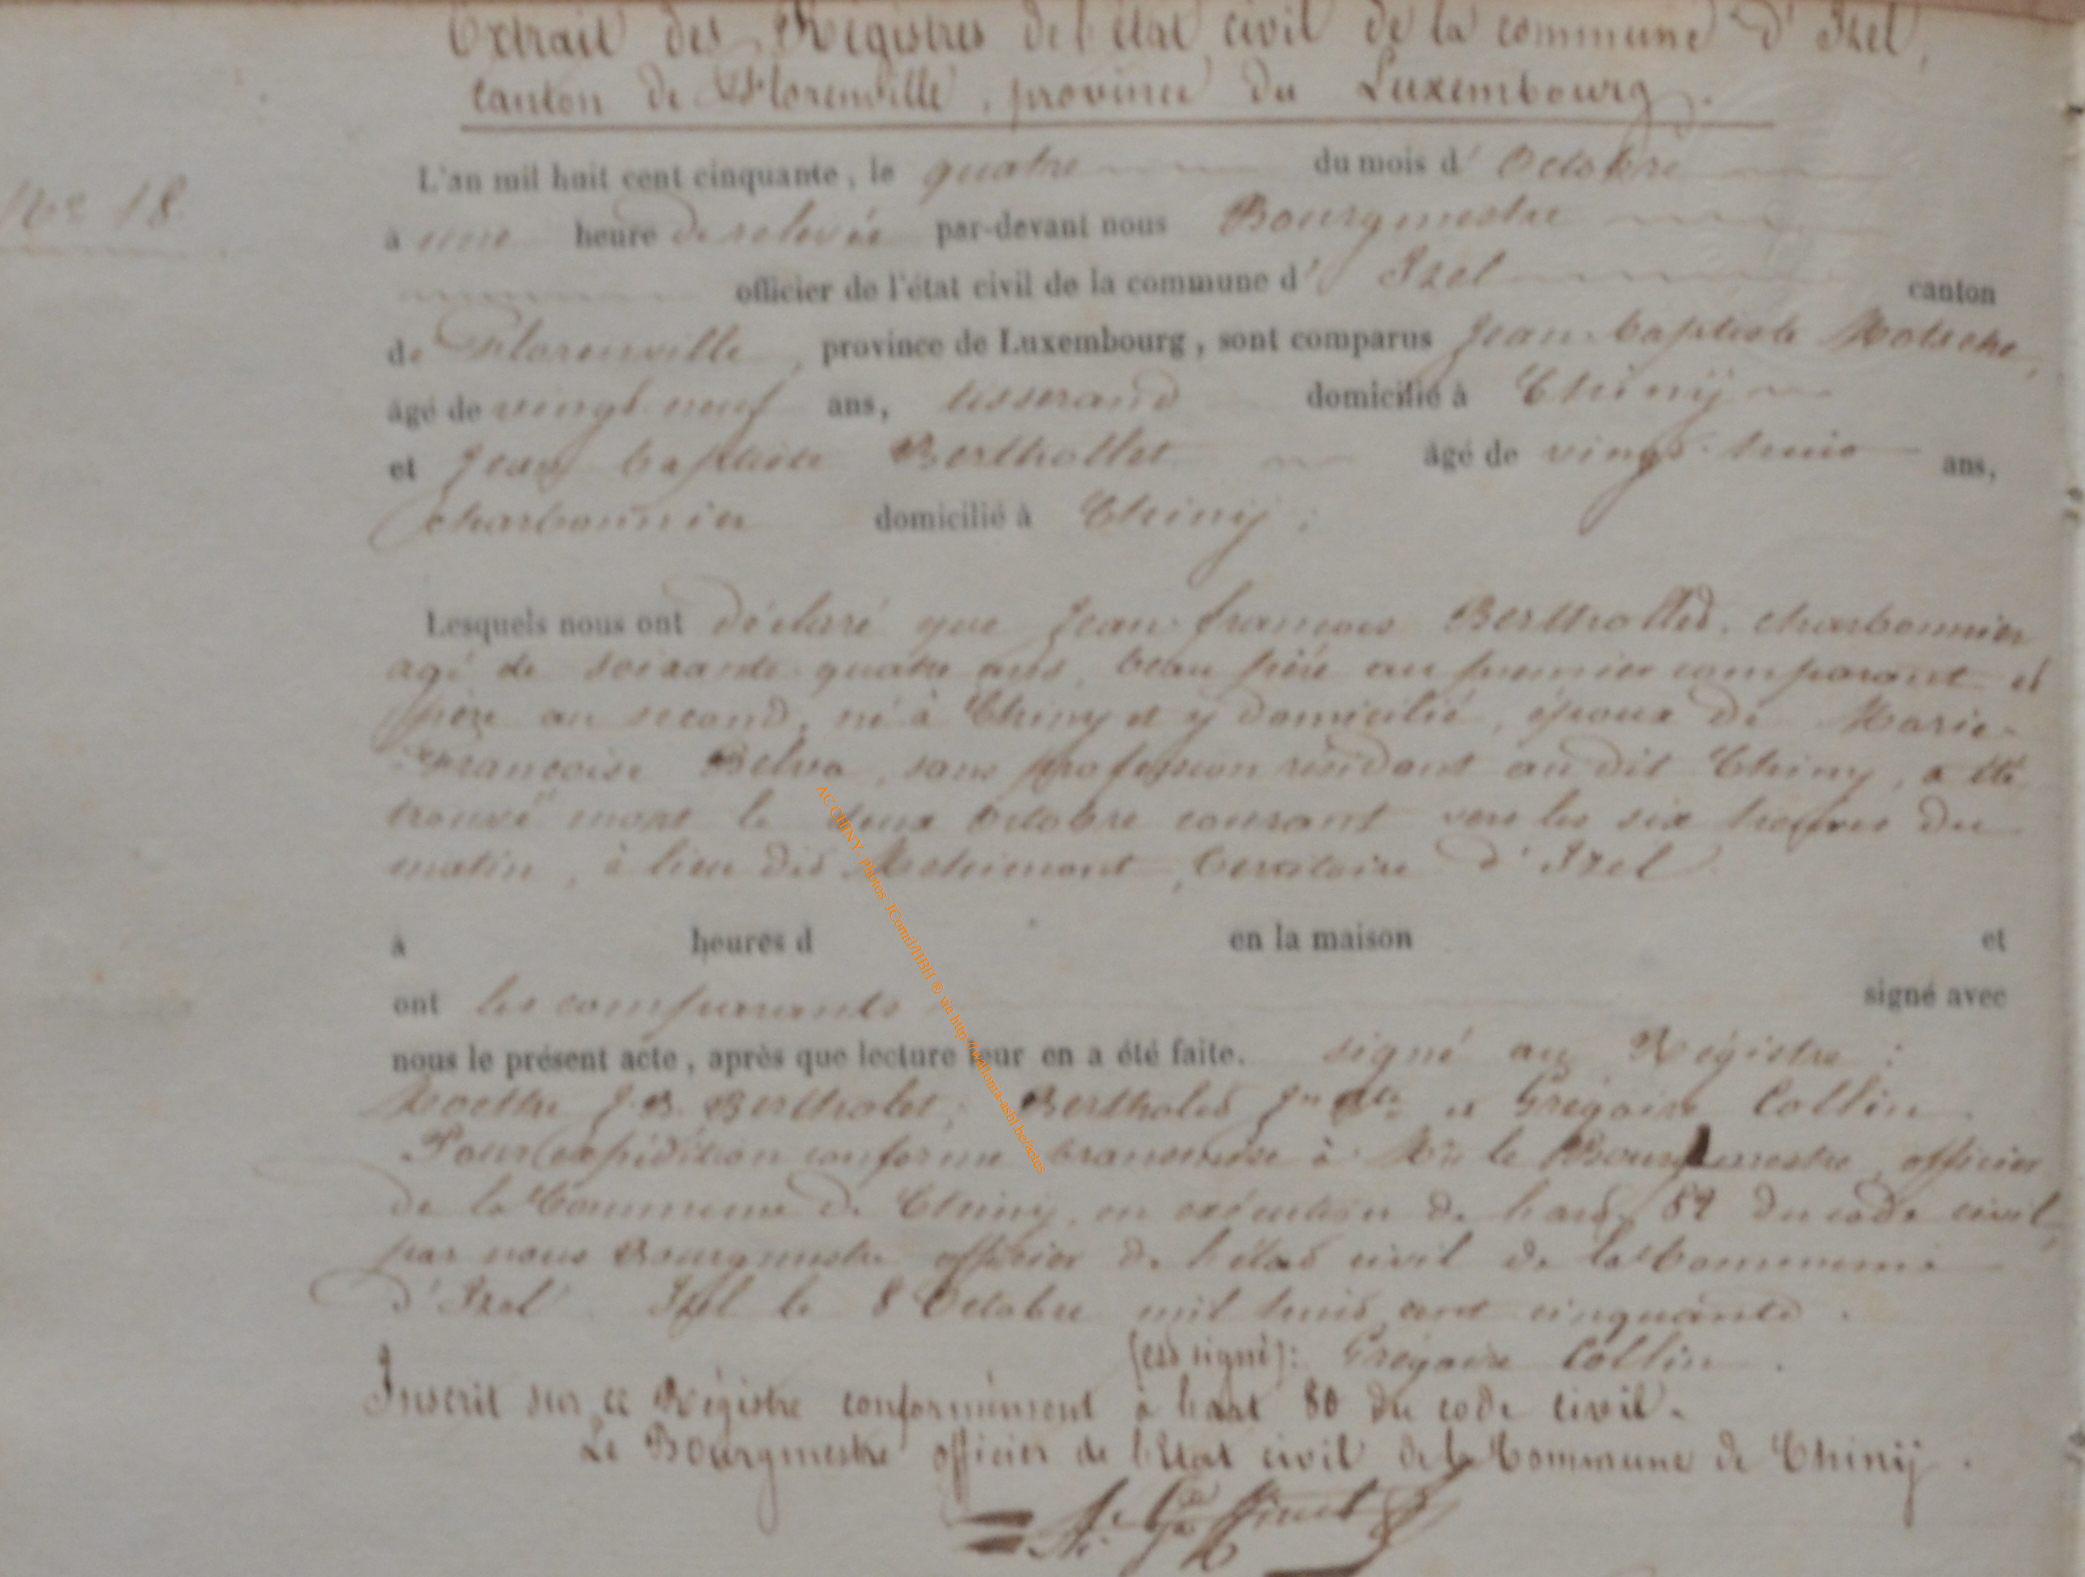 Extrait des Régistres de l'état civil de la commune d'Izel,
canton de Florenville, province du Luxembourg.
N° 18
L'an mil huit cent cinquante, le quatre du mois d'Octobre
à une heure de relevée par-devant nous Bourgmestre
officier de l'état civil de la commune d'Izel canton
de Florenville, province de Luxembourg, sont comparus Jean-baptiste
âgé de vingt neuf ans, tisserand domicilié à Chiny
et Jean baptiste Berthollet âgé de vingt-huit ans,
charbonnier domicilié à Chiny;
Lesquels nous ont déclaré que Jean-françois Berthollet, charbonnier
agé de soixante quatre ans, beau père au premier comparant et
père au second, né à Chiny et y domicilié, époux de Marie-
Françoise, sans profession résidant au dit Chiny, a été
trouvé mort le deux Octobre courant vers les six heures du
matin, à lieu dit, territoire d'Izel
à heures d en la maison et
ont les comparants signé avec
nous le présent acte, après que lecture leur en a été faite. signé au Régistre :
J.B. Bertholet; Bertholet Jn Bte et Grégoire Collin.
Pour expédition conforme transmise à Mr le Bourgmestre, officier
de la Commune de Chiny, en exécution de l'art du code civil,
par nous Bourgmestre officier de l'état civil de la Commune
d'Izel. Izel le 8 Octobre mil huit cent cinquante.
(est signé): Grégoire Collin.
Inscrit sur ce Régistre conformément à l'art 80 du code civil.
Le Bourgmestre officier de l'Etat civil de la Commune de Chiny.
AC CHINY - Photos JCornil/HBH ©, via http://walloniia-asbl.be/actes